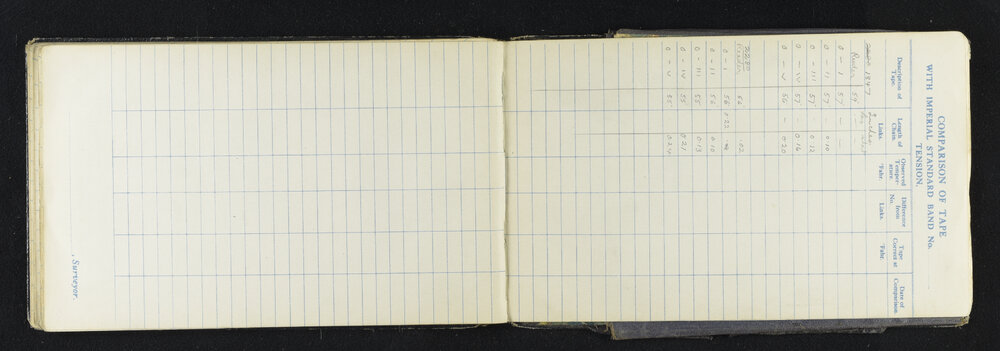 COMPARISON OF TAPE
WITH IMPERIAL STANDARD BAND No.
TENSION.
Description of Tape.
Length of Chain Links.
Observed Temperature. °Fahr.
Difference from No. Links.
Tape Correct at °Fahr.
Date of Comparison
1847
59 -
0 - I 57 - -
0 - II 57 - 0.10
0 - III 57 - 0.12
0 - IV 57 - 0.16
0 - V 56 - 0.20
56 .02
0 - II 56 0.10
0 - III 55 0.13
0 - IV 55 0.21
0 - V 55
Surveyor.